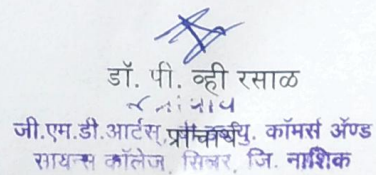 डॉ. पी. व्ही रसाळ
प्राचार्य
जी.एम.डी.आर्टस्, यु. कॉमर्स ॲण्ड
सायन्स कॉलेज, सिन्नर, जि. नाशिक